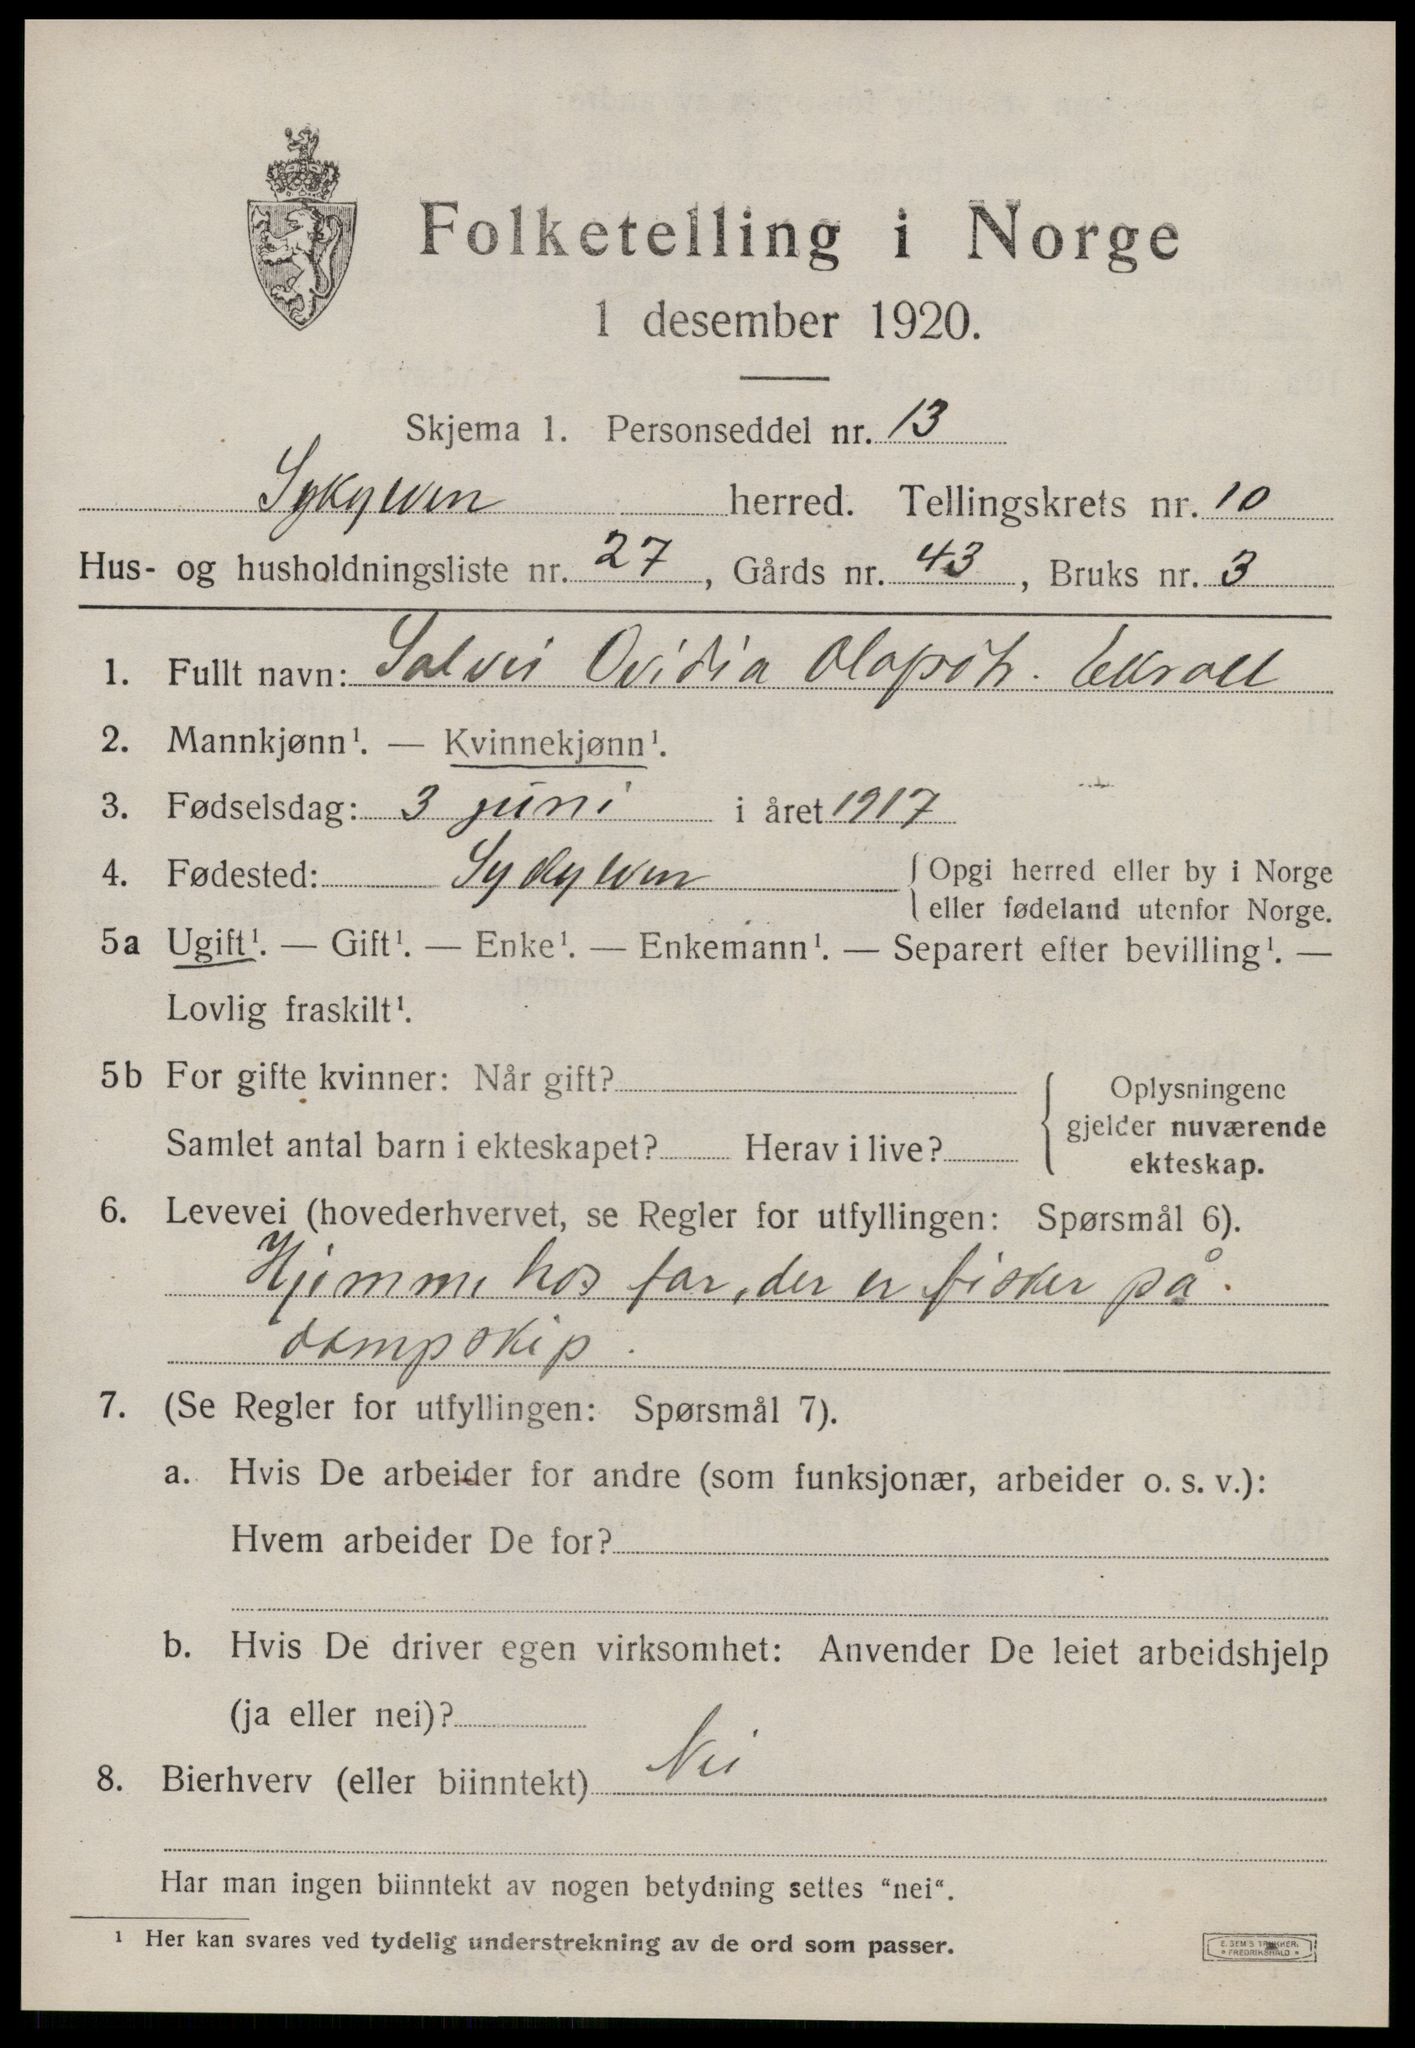 Folketelling i Norge
1 desember 1920.
Skjema 1. Personseddel nr. 13
Sykylven herred. Tellingskrets nr. 10
Hus- og husholdningsliste nr. 27, Gårds nr. 43, Bruks nr. 3
1. Fullt navn: Solvei Ovidia Olafsdtr. Ekroll
2. Mannkjønn¹. — Kvinnekjønn¹.
3. Fødselsdag: 3 juni i året 1917
4. Fødested: Sykylven { Opgi herred eller by i Norge
eller fødeland utenfor Norge.
5a Ugift¹. — Gift¹. — Enke¹. — Enkemann¹. — Separert efter bevilling¹. —
Lovlig fraskilt¹.
5b For gifte kvinner: Når gift?
Samlet antal barn i ekteskapet? Herav i live?
{ Oplysningene
gjelder nuværende
ekteskap.
6. Levevei (hovederhvervet, se Regler for utfyllingen: Spørsmål 6).
Hjemme hos far, der er fisker på
dampskip.
7. (Se Regler for utfyllingen: Spørsmål 7).
a. Hvis De arbeider for andre (som funksjonær, arbeider o. s. v.):
Hvem arbeider De for?
b. Hvis De driver egen virksomhet: Anvender De leiet arbeidshjelp
(ja eller nei)?
8. Bierhverv (eller biinntekt) Nei
Har man ingen biinntekt av nogen betydning settes "nei".
¹ Her kan svares ved tydelig understrekning av de ord som passer.
E. SEM'S TRYKKERI
* FREDRIKSHALD *